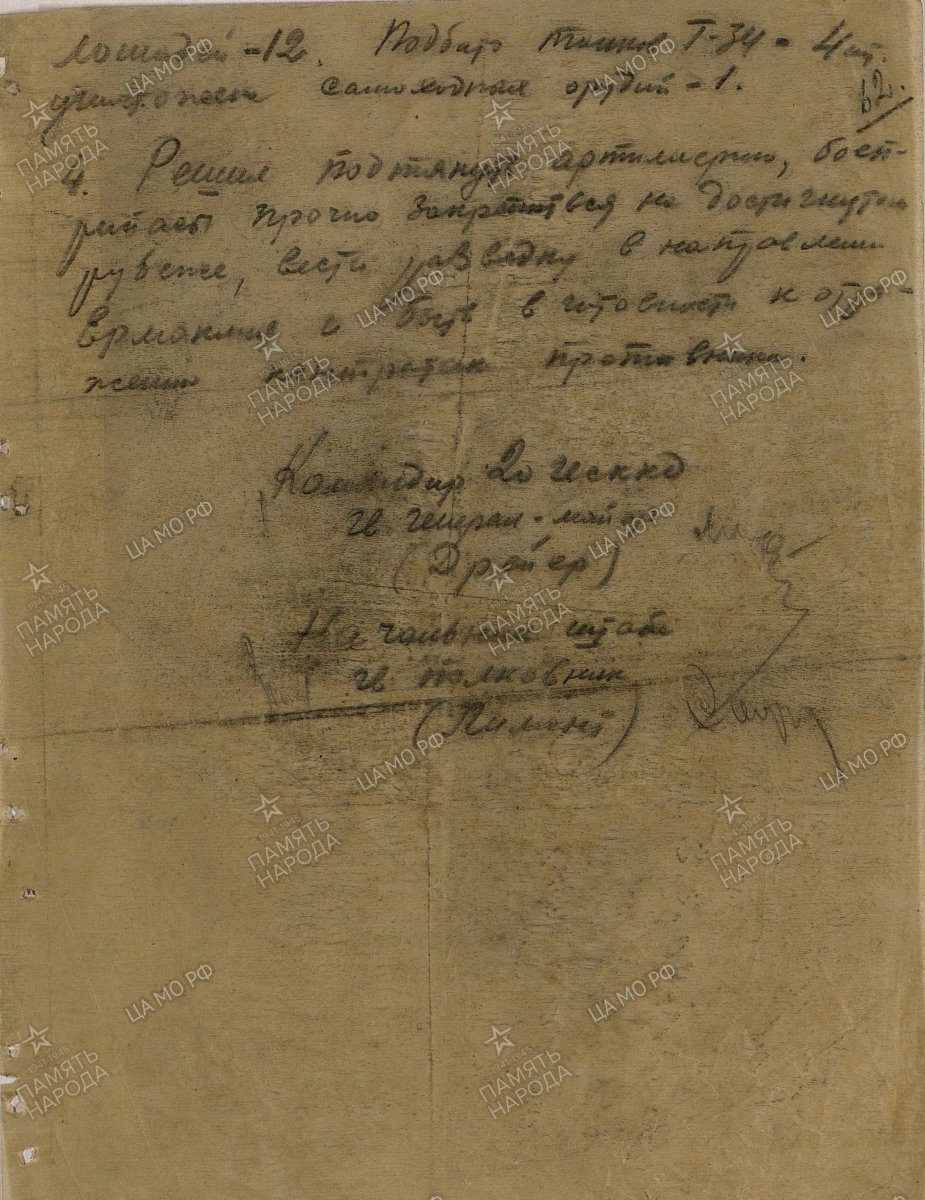 лошадей - 12. Подбито танков Т-34 - 4 шт.
уничтожено самоходных орудий - 1.
62.
4. Решил подтянуть артиллерию, боеп-
рипасы прочно закрепиться на достигнутом
рубеже, вести разведку в направлении
и быть в готовности к отра-
жению контратак противника.
Командир 20 гскккд
гв генерал-майор
(Дрейер)
Начальник штаба
гв полковник
ПАМЯТЬ НАРОДА
1941-1945
ЦА МО РФ